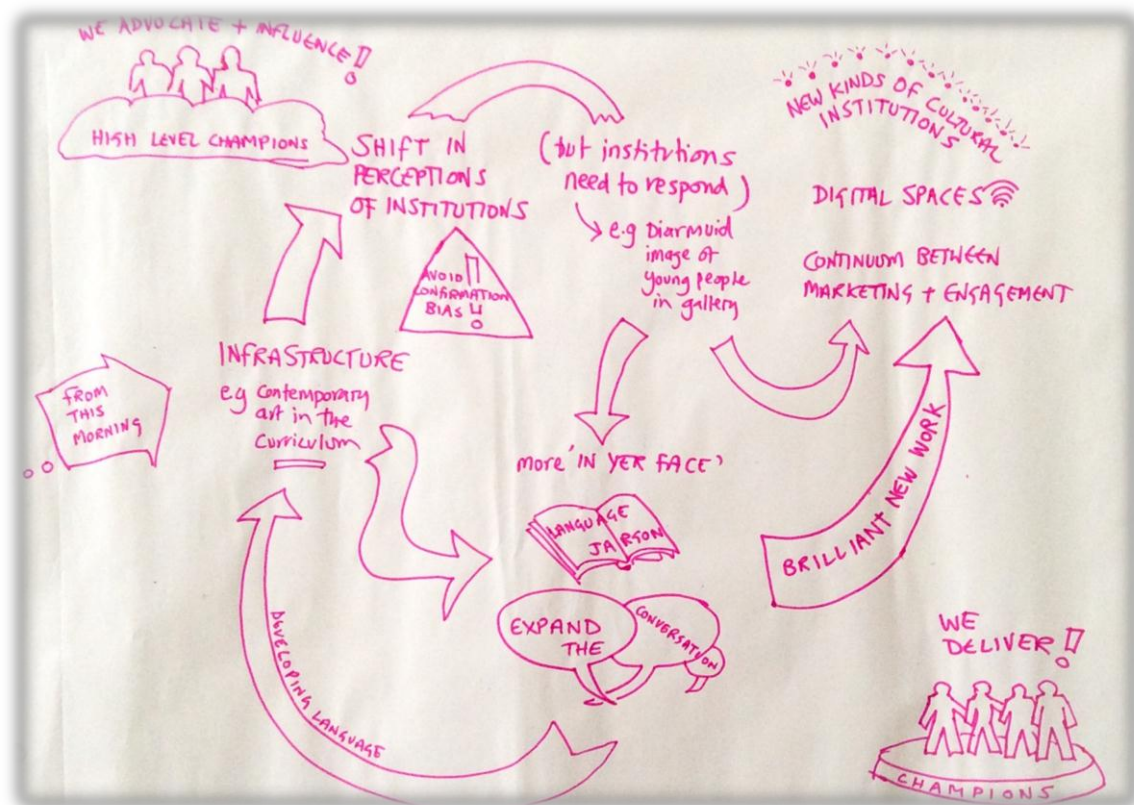 WE ADVOCATE + INFLUENCE!
HIGH LEVEL CHAMPIONS
SHIFT IN
PERCEPTIONS
OF INSTITUTIONS
(but institutions
need to respond)
e.g Diarmuid
image of
young people
in gallery
NEW KINDS OF CULTURAL
INSTITUTIONS
DIGITAL SPACES
CONTINUUM BETWEEN
MARKETING + ENGAGEMENT
AVOID
CONFIRMATION
BIAS!
FROM
THIS
MORNING
INFRASTRUCTURE
eg Contemporary
art in the
Curriculum
More 'IN YER FACE'
LANGUAGE
JARGON
EXPAND
THE
CONVERSATION
DEVELOPING LANGUAGE
BRILLIANT NEW WORK
WE
DELIVER!
CHAMPIONS